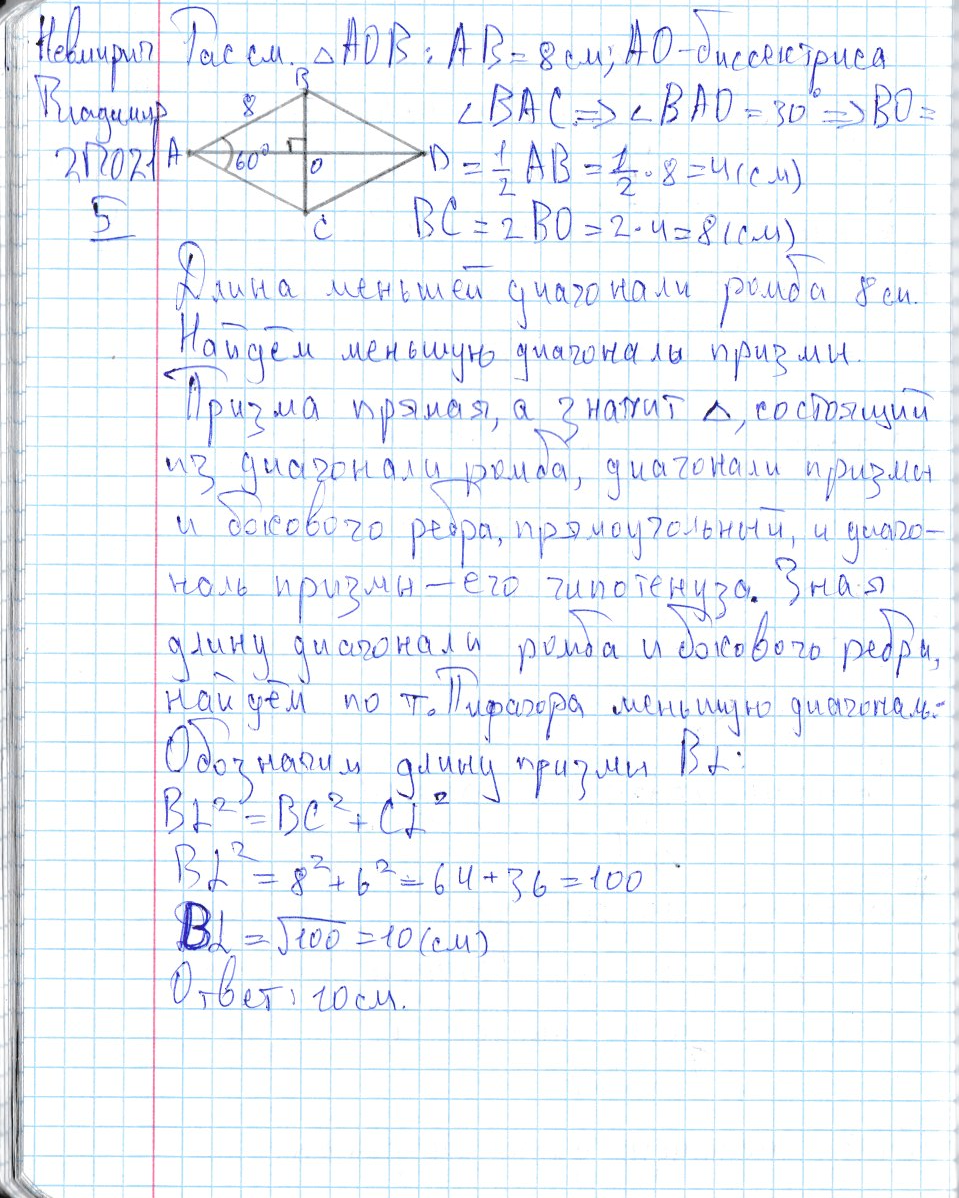 Невмирич Рассм. △AOB: AB = 8 см; AO-биссектриса
Владимир ∠BAC ⇒ ∠BAO = 30° ⇒ BO =
2ПО21 = 1/2 AB = 1/2 · 8 = 4 (см)
5 BC = 2BO = 2·4 = 8 (см)
B
8
A 60° O D
C
Длина меньшей диагонали ромба 8 см.
Найдём меньшую диагональ призмы.
Призма прямая, а значит △, состоящий
из диагонали ромба, диагонали призмы
и бокового ребра, прямоугольный, и диаго-
наль призмы – его гипотенуза. Зная
длину диагонали ромба и бокового ребра,
найдём по т. Пифагора меньшую диагональ:
Обозначим длину призмы BL:
BL² = BC² + CL²
BL² = 8² + 6² = 64 + 36 = 100
BL = √100 = 10 (см)
Ответ: 10 см.